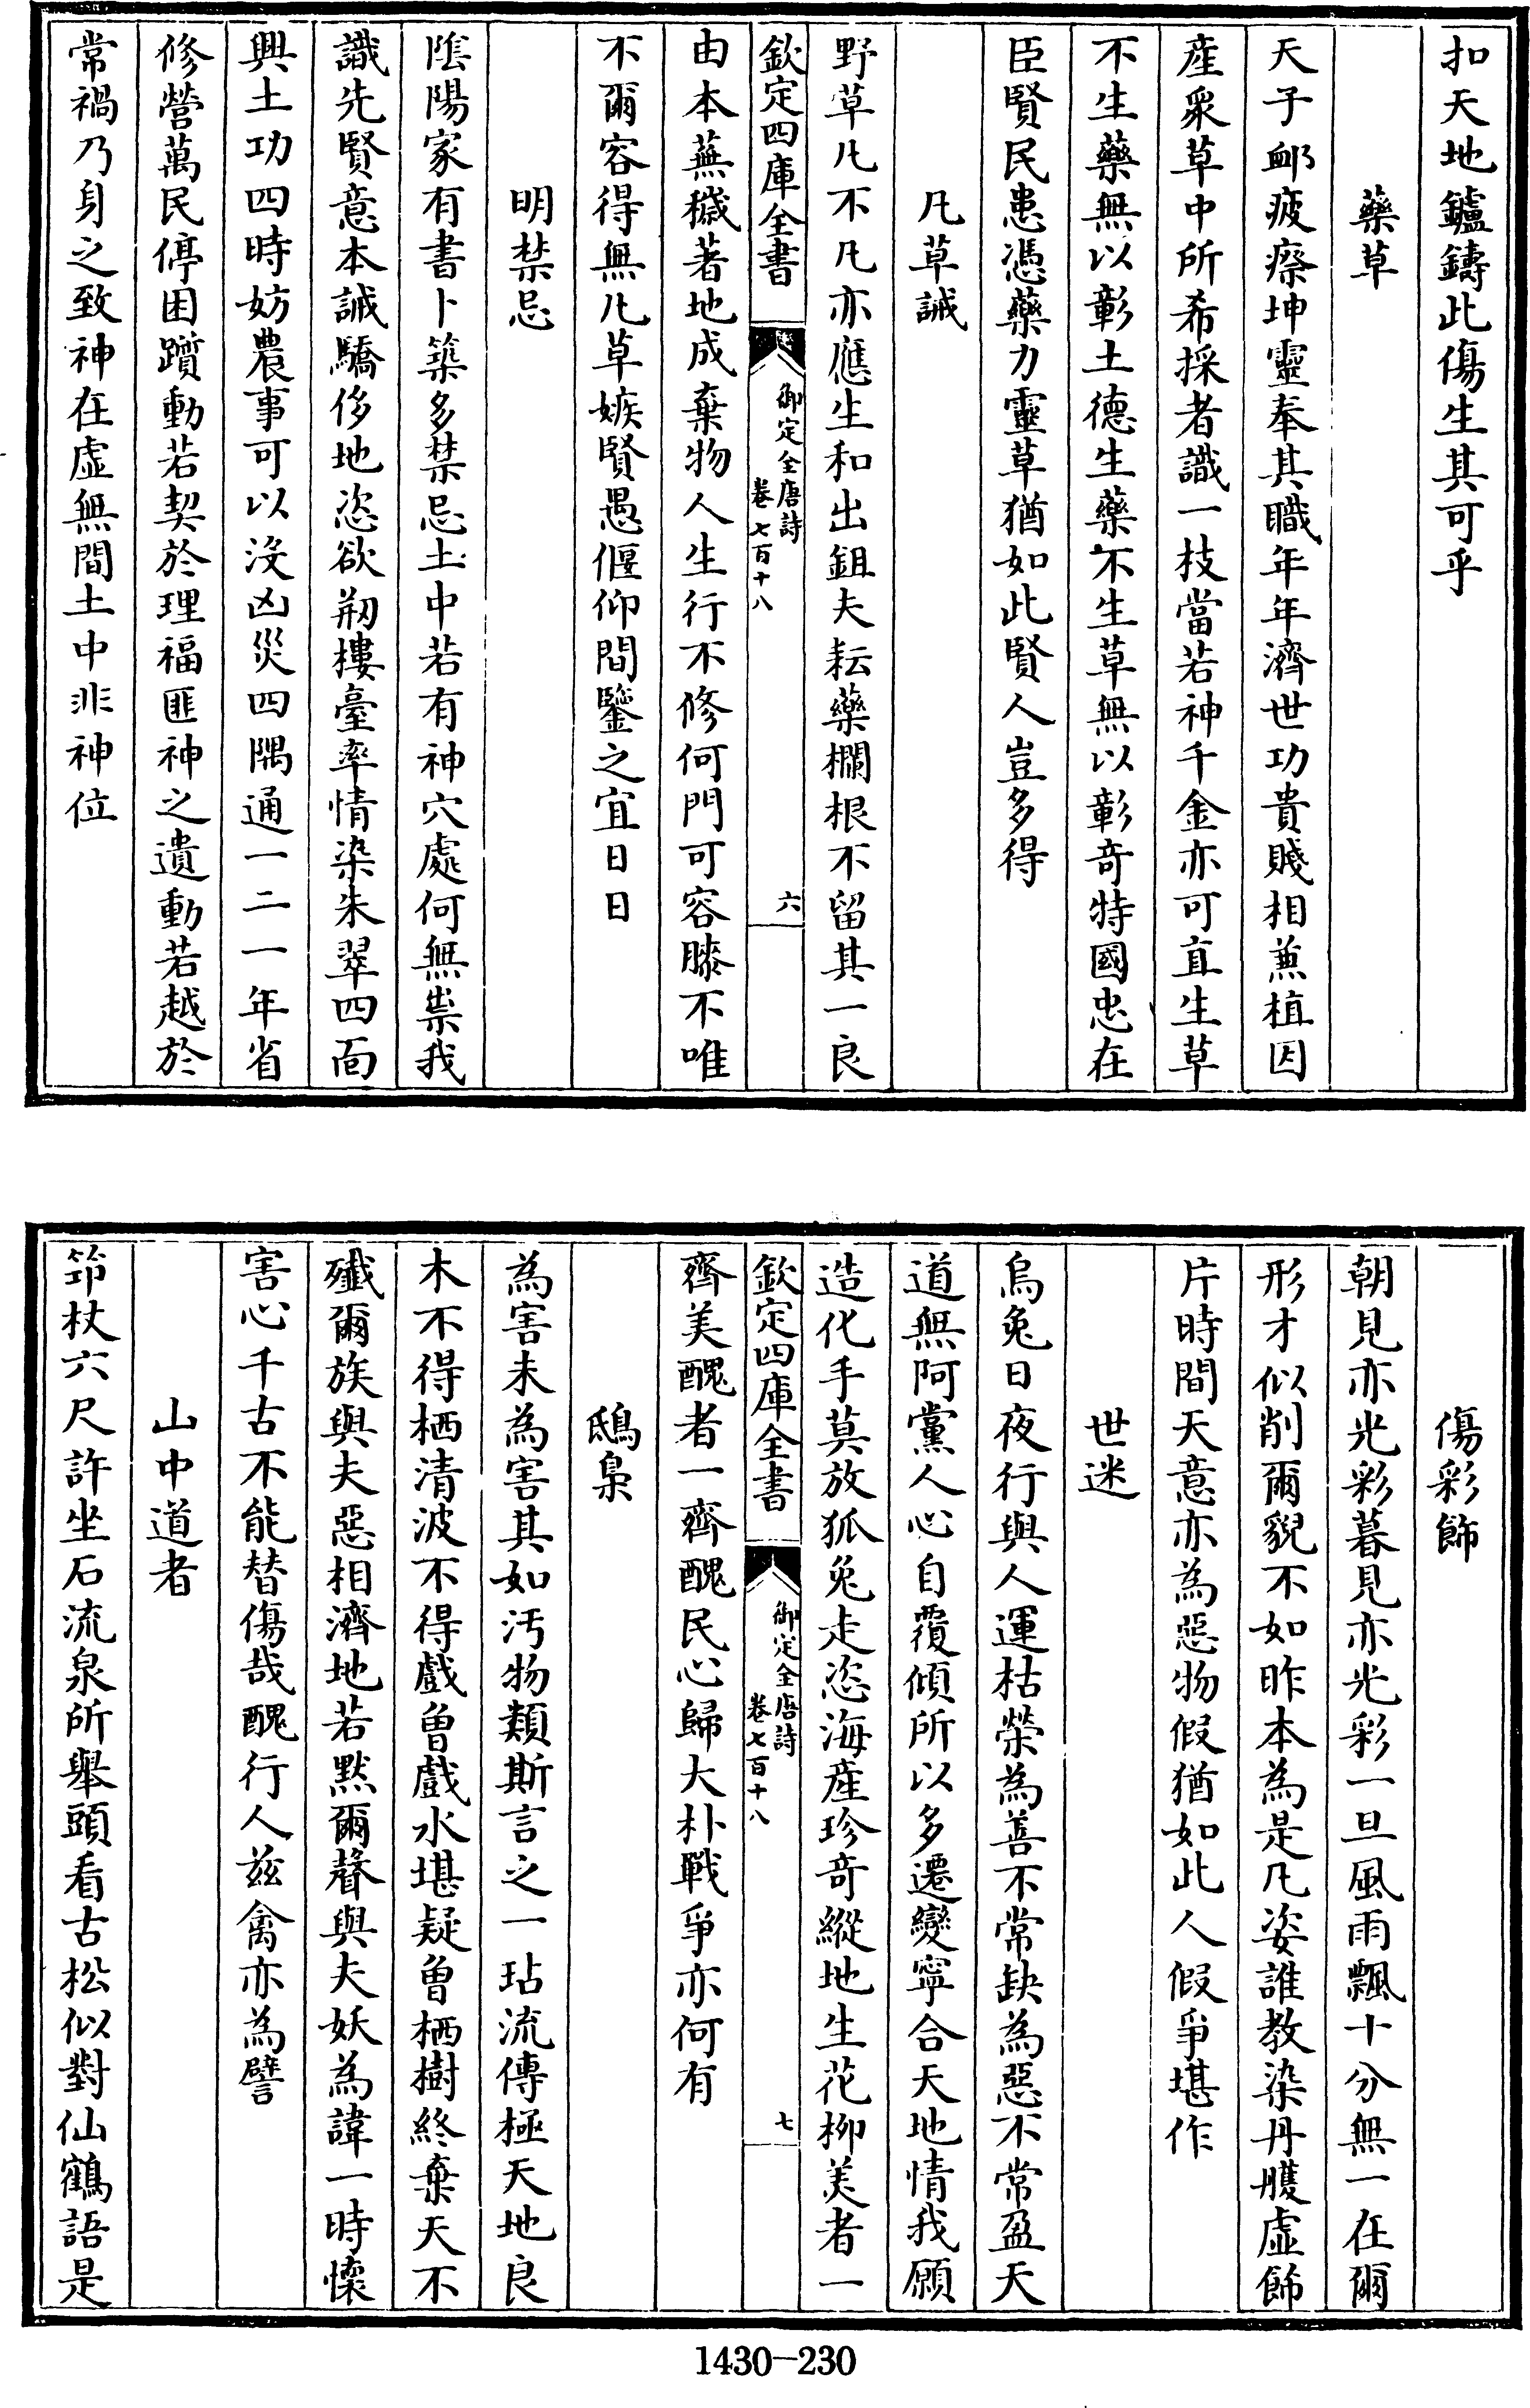 扣天地鑪鑄此傷生其可乎
藥草
天子䘏疲瘵坤靈奉其職年年濟世功貴賤相兼植因
産衆草中所希採者識一枝當若神千金亦可直生草
不生藥無以彰土德生藥不生草無以彰奇特國忠在
臣賢民患憑藥力靈草猶如此賢人豈多得
凡草誡
野草凡不凡亦應生和出鉏夫耘藥欄根不留其一良
欽定四庫全書
御定全唐詩
卷七百十八
六
由本蕪穢著地成棄物人生行不修何門可容膝不唯
不爾容得無凡草嫉賢愚偃仰間鑒之宜日日
明禁忌
隂陽家有書卜築多禁忌土中若有神穴處何無祟我
識先賢意本誡驕侈地恣欲剏樓臺率情染朱翠四面
興土功四時妨農事可以沒凶災四隅通一二一年省
修營萬民停困躓動若契於理福匪神之遺動若越於
常禍乃身之致神在虛無間土中非神位
傷彩飾
朝見亦光彩暮見亦光彩一旦風雨飄十分無一在爾
形才似削爾貌不如昨本為是凡姿誰教染丹雘虛飾
片時間天意亦為惡物假猶如此人假爭堪作
世迷
烏兔日夜行與人運枯榮為善不常缺為惡不常盈天
道無阿黨人心自覆傾所以多遷變寧合天地情我願
造化手莫放狐兔走恣海産珍奇縱地生花柳美者一
欽定四庫全書
御定全唐詩
卷七百十八
七
齊美醜者一齊醜民心歸大朴戰爭亦何有
鴟梟
為害未為害其如汚物類斯言之一玷流傳極天地良
木不得栖清波不得戲曾戲水堪疑曾栖樹終棄天不
殲爾族與夫惡相濟地若默爾聲與夫妖為諱一時懷
害心千古不能替傷哉醜行人兹禽亦為譬
山中道者
筇杖六尺許坐石流泉所舉頭看古松似對仙鶴語是
1430-230